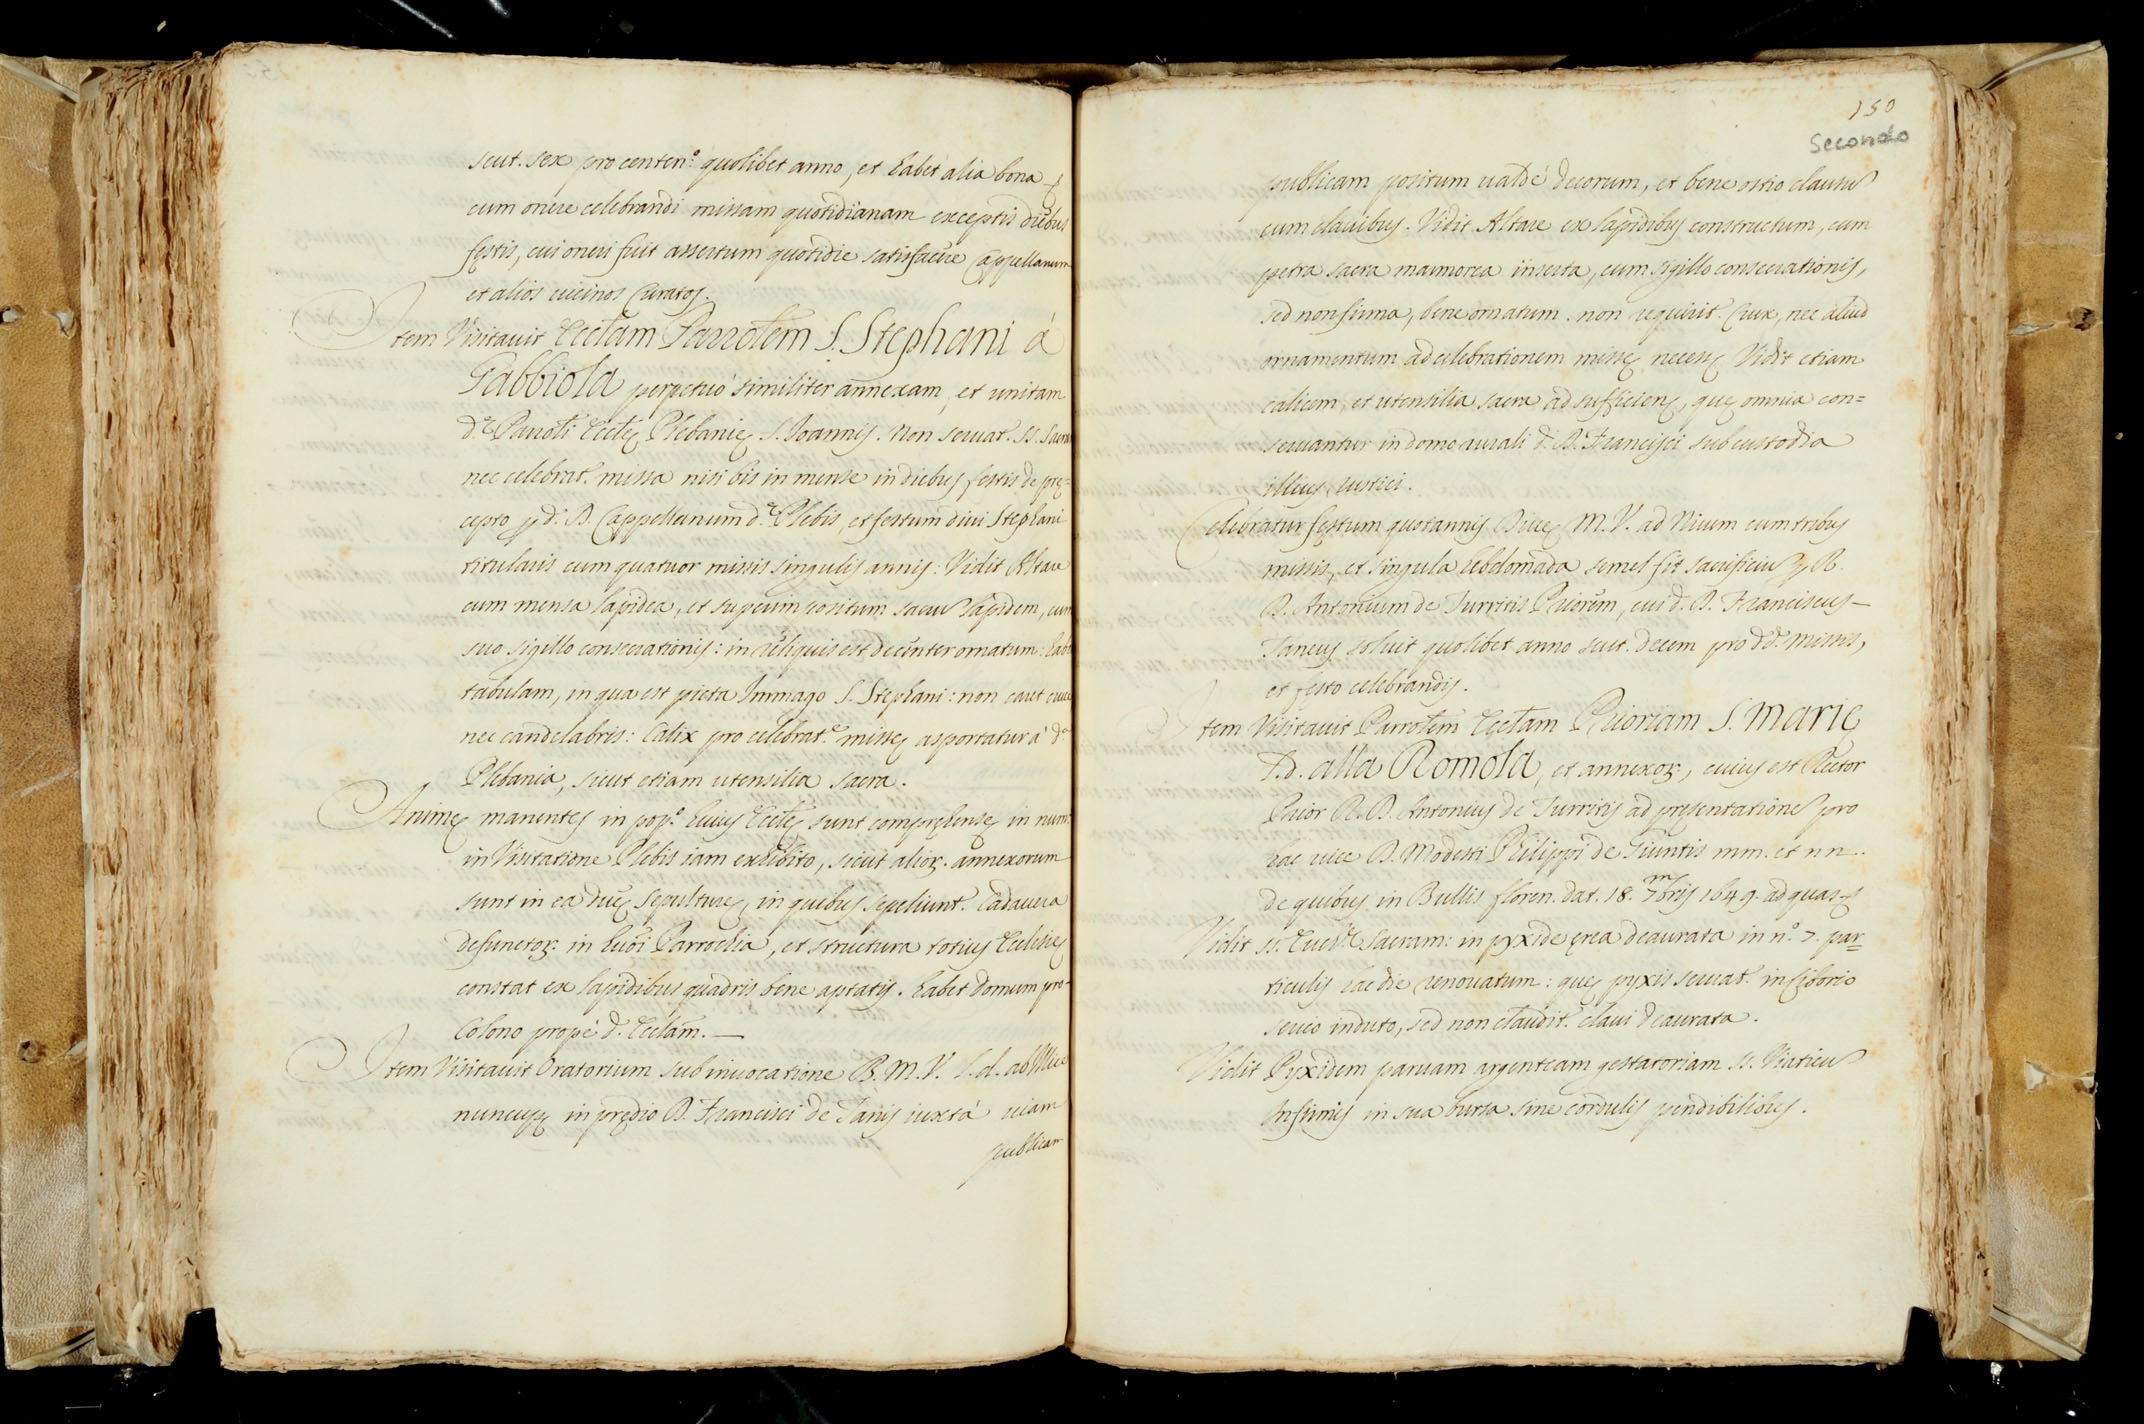 scut. sex pro centen.º quolibet anno, et habet alia bona
cum onere celebrandi missam quotidianam exceptis diebus
festis, cui oneri fuit assertum quotidie satisfacere Cappellanum
et alios vicinos Curatos.
Item Visitavit Eccl̃am Parrol̃em S. Stephani á
Gabbiola perpetuó similiter annexam, et unitam
d.ę Parroli Eccl̃ę Plebanię S. Joannis. Non servat. SS. Sacra
nec celebrat. missa nisi bis in mense in diebus festis de prę=
cepto p d. D. Cappellanum d.ę Plebis, et festum divi Stephani
titularis cum quatuor missis singulis annis: Vidit Altare
cum mensa lapidea, et super eum positum sacrũ lapidem, cum
suo sigillo consecrationis: in reliquis est decenter ornatum: habet
tabulam, in qua est picta Immago S. Stephani: non caret cruce
nec candelabris: Calix pro celebrat.e missę asportatur á d.a
Plebania, sicut etiam utensilia sacra.
Animę manentes in pop.º huius Eccl̃ę sunt comprehensę in num.
in Visitatione Plebis iam exhibito, sicut alior. annexorum
sunt in ea duę sepulturę, in quibus sepeliunt. Cadavera
defunctor. in huõi Parrochia, et structura totius Ecclesię
constat ex lapidibus quadris bene aptatis. habet domum pro
Colono propé d. Eccl̃am.
Item Visitavit Oratorium sub invocatione B. M. V. s.d. ab Nive
nuncup. in prędio D. Francisci de Tanis iuxtá viam
publicam
150
Secondo
publicam positum valdé decorum, et bene ostio clausũ
cum clavibus. Vidit Altare ex lapidibus constructum, cum
petra sacra marmorea inserta, cum sigillo consecrationis,
sed non firma, bene ornatum. non requirit Crux, nec aliud
ornamentum ad celebrationem missę necess.ę Vidit etiam
calicem, et utensilia sacra ad sufficien., quę omnia con=
servantur in domo rurali d. D. Francisci sub custodia
illius rustici.
Celebratur festum quotannis Divę M. V. ad Nivem cum tribus
missis, et singula hebdomada semel fit sacrificiũ p R.
D. Antonium de Turritis Priorem, cui d. D. Franciscus
Tanius solvit quolibet anno scut. decem pro dd. missis,
et festo celebrandis.
Item Visitavit Parrol̃em Eccl̃am Prioriam S. Marię
s.d. alla Romola, et annexor., cuius est Rector
Prior R. D. Antonius de Turritis ad presentationẽ pro
hac vice D. Modesti Philippi de Giuntis mm. et nn.
de quibus in Bullis floren. dat. 18. 7bris 1649. ad quas
Vidit SS. Euch.ę Sacram: in pyxide ęrea deaurata in n.º 7. par=
ticulis hac die renovatum: quę pyxis servat. in Ciborio
serico induto, sed non claudit. clavi deaurata.
Vidit Pyxidem parvam argenteam gestatoriam SS. Viaticũ
Infirmis in sua bursa sine cordulis pendibilibus.